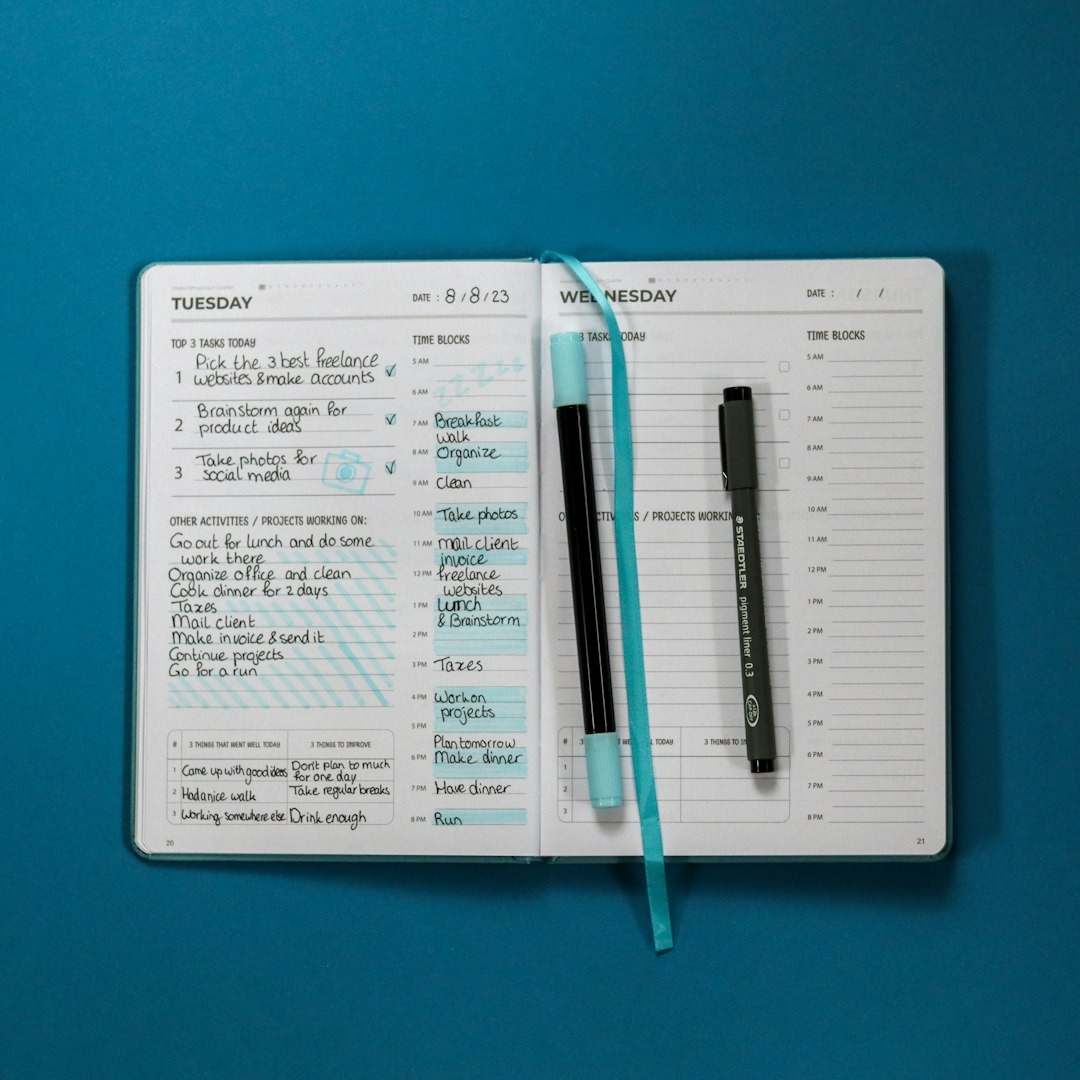 TUESDAY
DATE : 8/8/23
TOP 3 TASKS TODAY
1 Pick the 3 best freelance
websites & make accounts
2 Brainstorm again for
product ideas
3 Take photos for
social media
OTHER ACTIVITIES / PROJECTS WORKING ON:
Go out for lunch and do some
work there
Organize office and clean
Cook dinner for 2 days
Taxes
Mail client
Make invoice & send it
Continue projects
Go for a run
# 3 THINGS THAT WENT WELL TODAY 3 THINGS TO IMPROVE
1 Came up with good ideas Dont plan to much
for one day
2 Had a nice walk Take regular breaks
3 Working somewhere else Drink enough
20
TIME BLOCKS
5 AM
zzzzz
6 AM
7 AM Breakfast
walk
8 AM Organize
9 AM Clean
10 AM Take photos
11 AM Mail client
invoice
12 PM freelance
websites
1 PM Lunch
& Brainstorm
2 PM
3 PM Taxes
4 PM Work on
projects
5 PM
Plan tomorrow
6 PM Make dinner
7 PM Have dinner
8 PM Run
WEDNESDAY
DATE : / /
3 TASKS TODAY
ACTIVITIES / PROJECTS WORKING
# 3 THINGS WELL TODAY 3 THINGS TO
1
2
3
TIME BLOCKS
5 AM
6 AM
7 AM
8 AM
9 AM
10 AM
11 AM
12 PM
1 PM
2 PM
3 PM
4 PM
5 PM
6 PM
7 PM
8 PM
21
STAEDTLER pigment liner 0.3